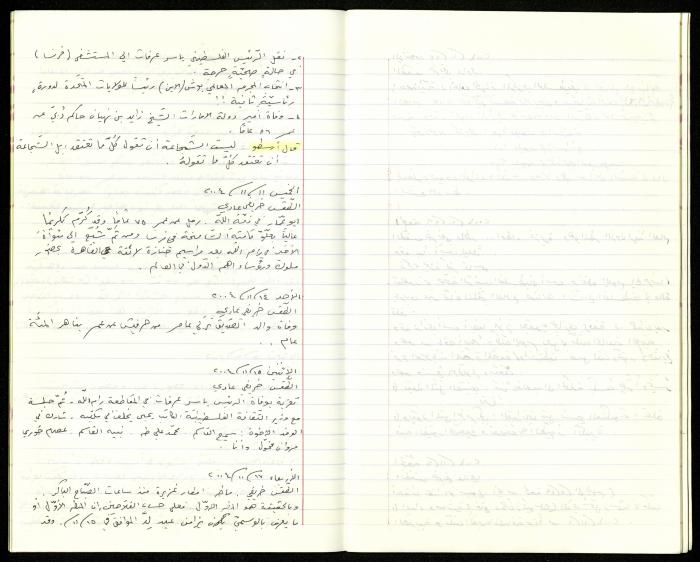 ٢- نقل الرّئيس الفلسطيني ياسر عرفات الى المستشفى (فرنسا)
في حالةٍ صحيّةٍ حرجة.
٣- انتخاب المجرم العالمي بوش (الابن) رئيسًا للولايات المتّحدة لدورةٍ
رئاسيّةٍ ثانية!!
٤- وفاة امير دولة الامارات الشّيخ زايد بن نهيان حاكم دُبي عن
عمر ٨٦ عامًا.
قال أرسطو: ليست الشّجاعة أن تقول كُلَّ ما تعتقد، بل الشّجاعة
أن تعتقد كلَّ ما تقوله.
الخميس ١١/١١/٢٠٠٤
الطّقس خريفي عادي
ابو عمّار في ذمّة اللّه. رحل عن عمر ٧٥ عامًا وقد كُرِّم تكريمًا
عاليًا قامته الشّامخة في فرنسا ومن ثمّ شُيّع الى مثواهُ
الأخير في رام اللّه بعد مراسيم جنازة لائقة في القاهرة بحضور
ملوك ورؤساء اهم الدّول في العالم.
الأحد ١٤/١١/٢٠٠٤
الطّقس خريفي عادي
وفاة والد الصّديق تركي عامر من حرفيش عن عمر يناهز المئة
عام..
الإثنين ١٥/١١/٢٠٠٤
الطّقس خريفي عادي
تعزية بوفاة الرئيس ياسر عرفات في المقاطعة رام اللّه. ثمّ جلسة
مع وزير الثقافة الفلسطينيّة الكاتب يحيى يخلف في مكتبه. شارك في
الوفد الاخوة: سميح القاسم. محمّد علي طه. نبيه القاسم. عصام خوري
مروان مخّول. وانا.
الاربعاء ١٧/١١/٢٠٠٤
الطّقس خريفي. ماطر امطار غزيرة منذ ساعات الصّباح الباكر.
وبالحقيقة هذا المطر الاوّل. فعلى حساب الفلاحين إن المطر الأوّل أو
ما يعرف بالوسمي يكون تزامن عيد لِدّ الموافق في ١٥/١١. وقد